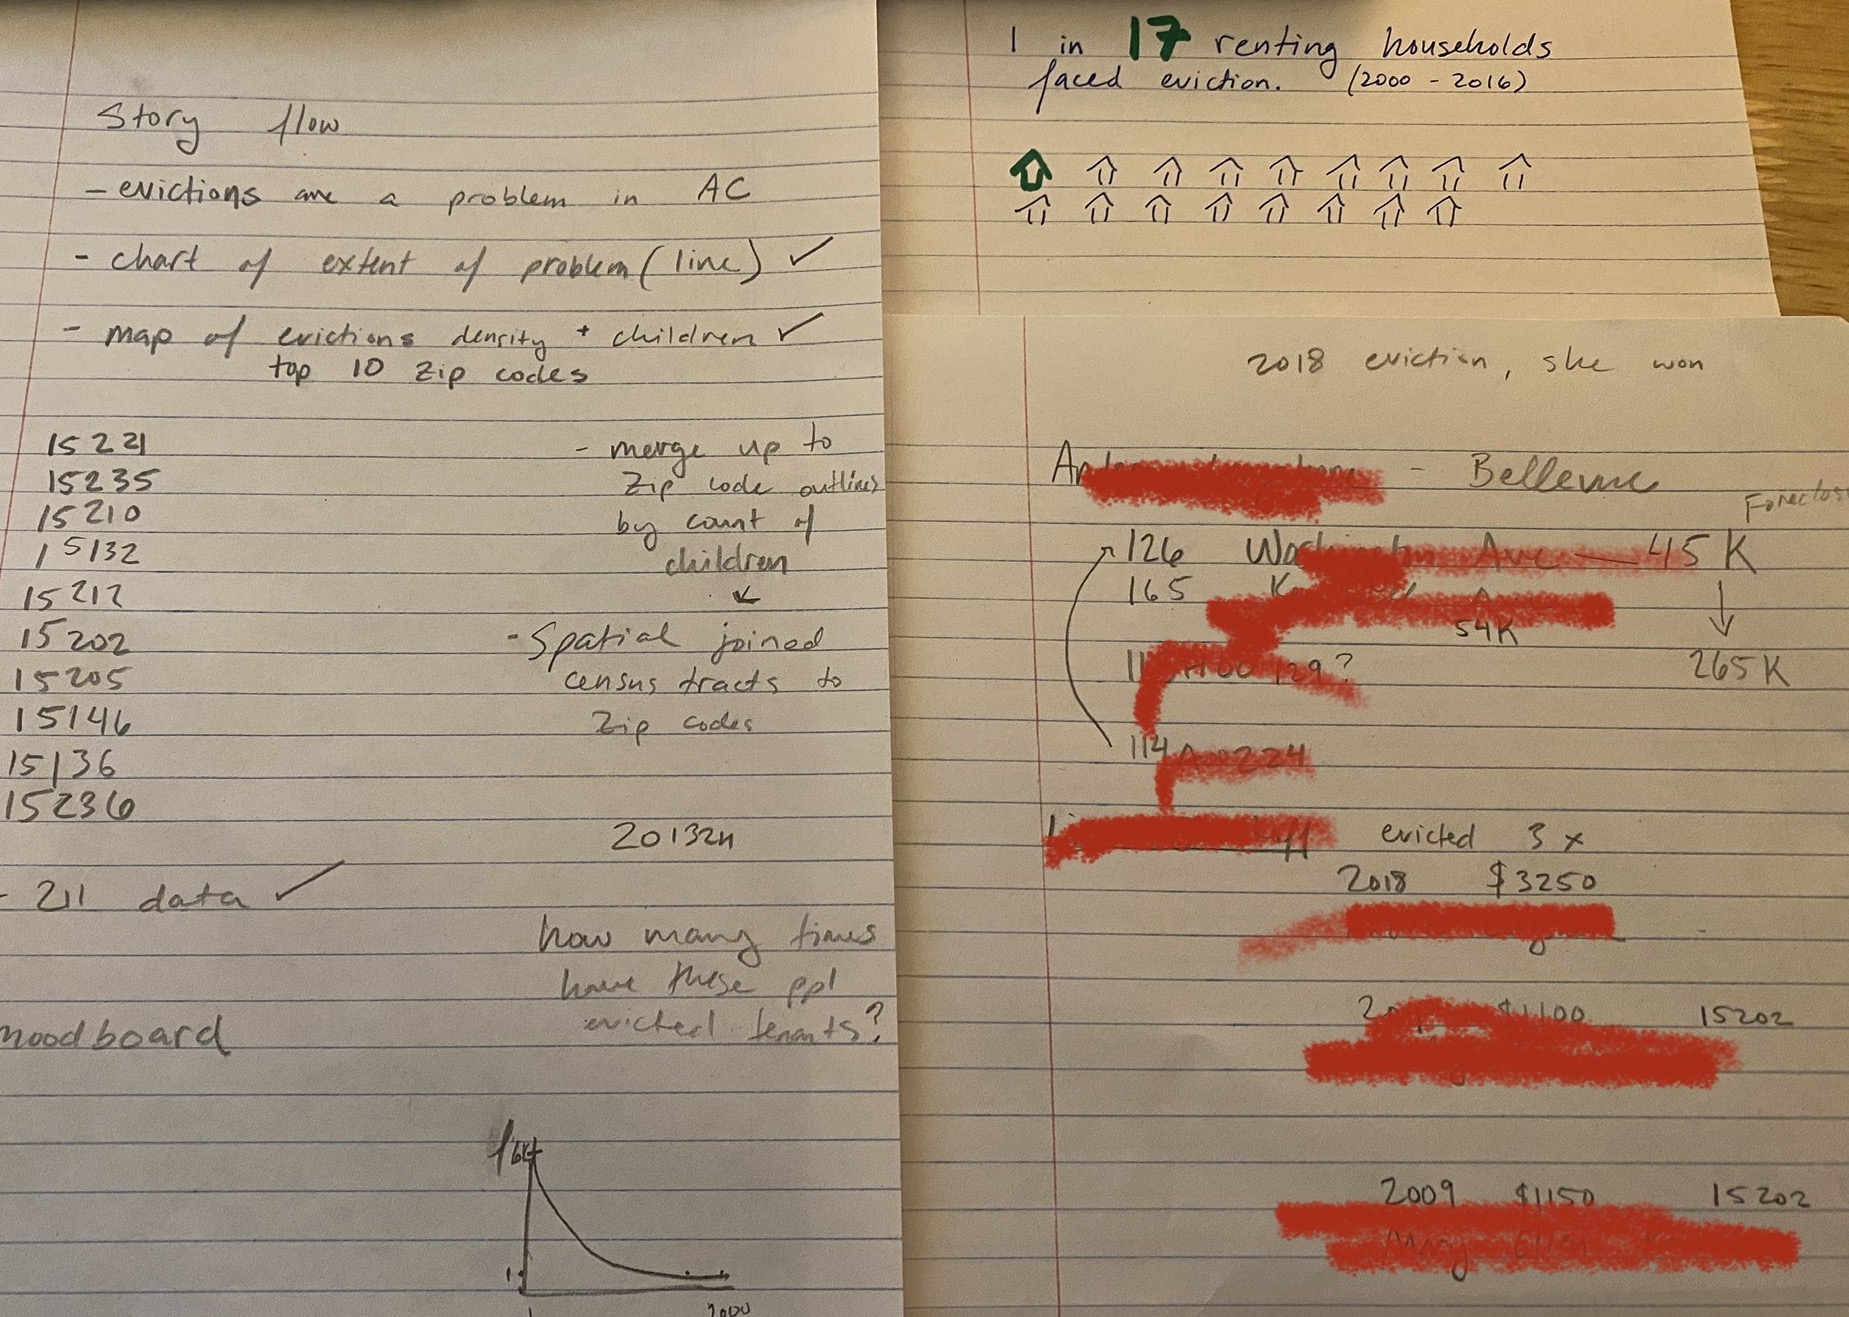 Story flow
- evictions are a problem in AC
- chart of extent of problem (line) ✓
- map of evictions density + children ✓
top 10 zip codes
15221
15235
15210
15132
15212
15202
15205
15146
15136
15236
- merge up to
zip code outlines
by count of
children
↙
- Spatial joined
census tracts to
zip codes
- 211 data ✓
how many times
have these ppl
evicted tenants?
moodboard
1
2000
1 in 17 renting households
faced eviction. (2000 - 2016)
2018 eviction, she won
- Bellevue
126 45K
165
54K
265K
114
evicted 3x
2018 $3250
$1100 15202
2009 $1150 15202